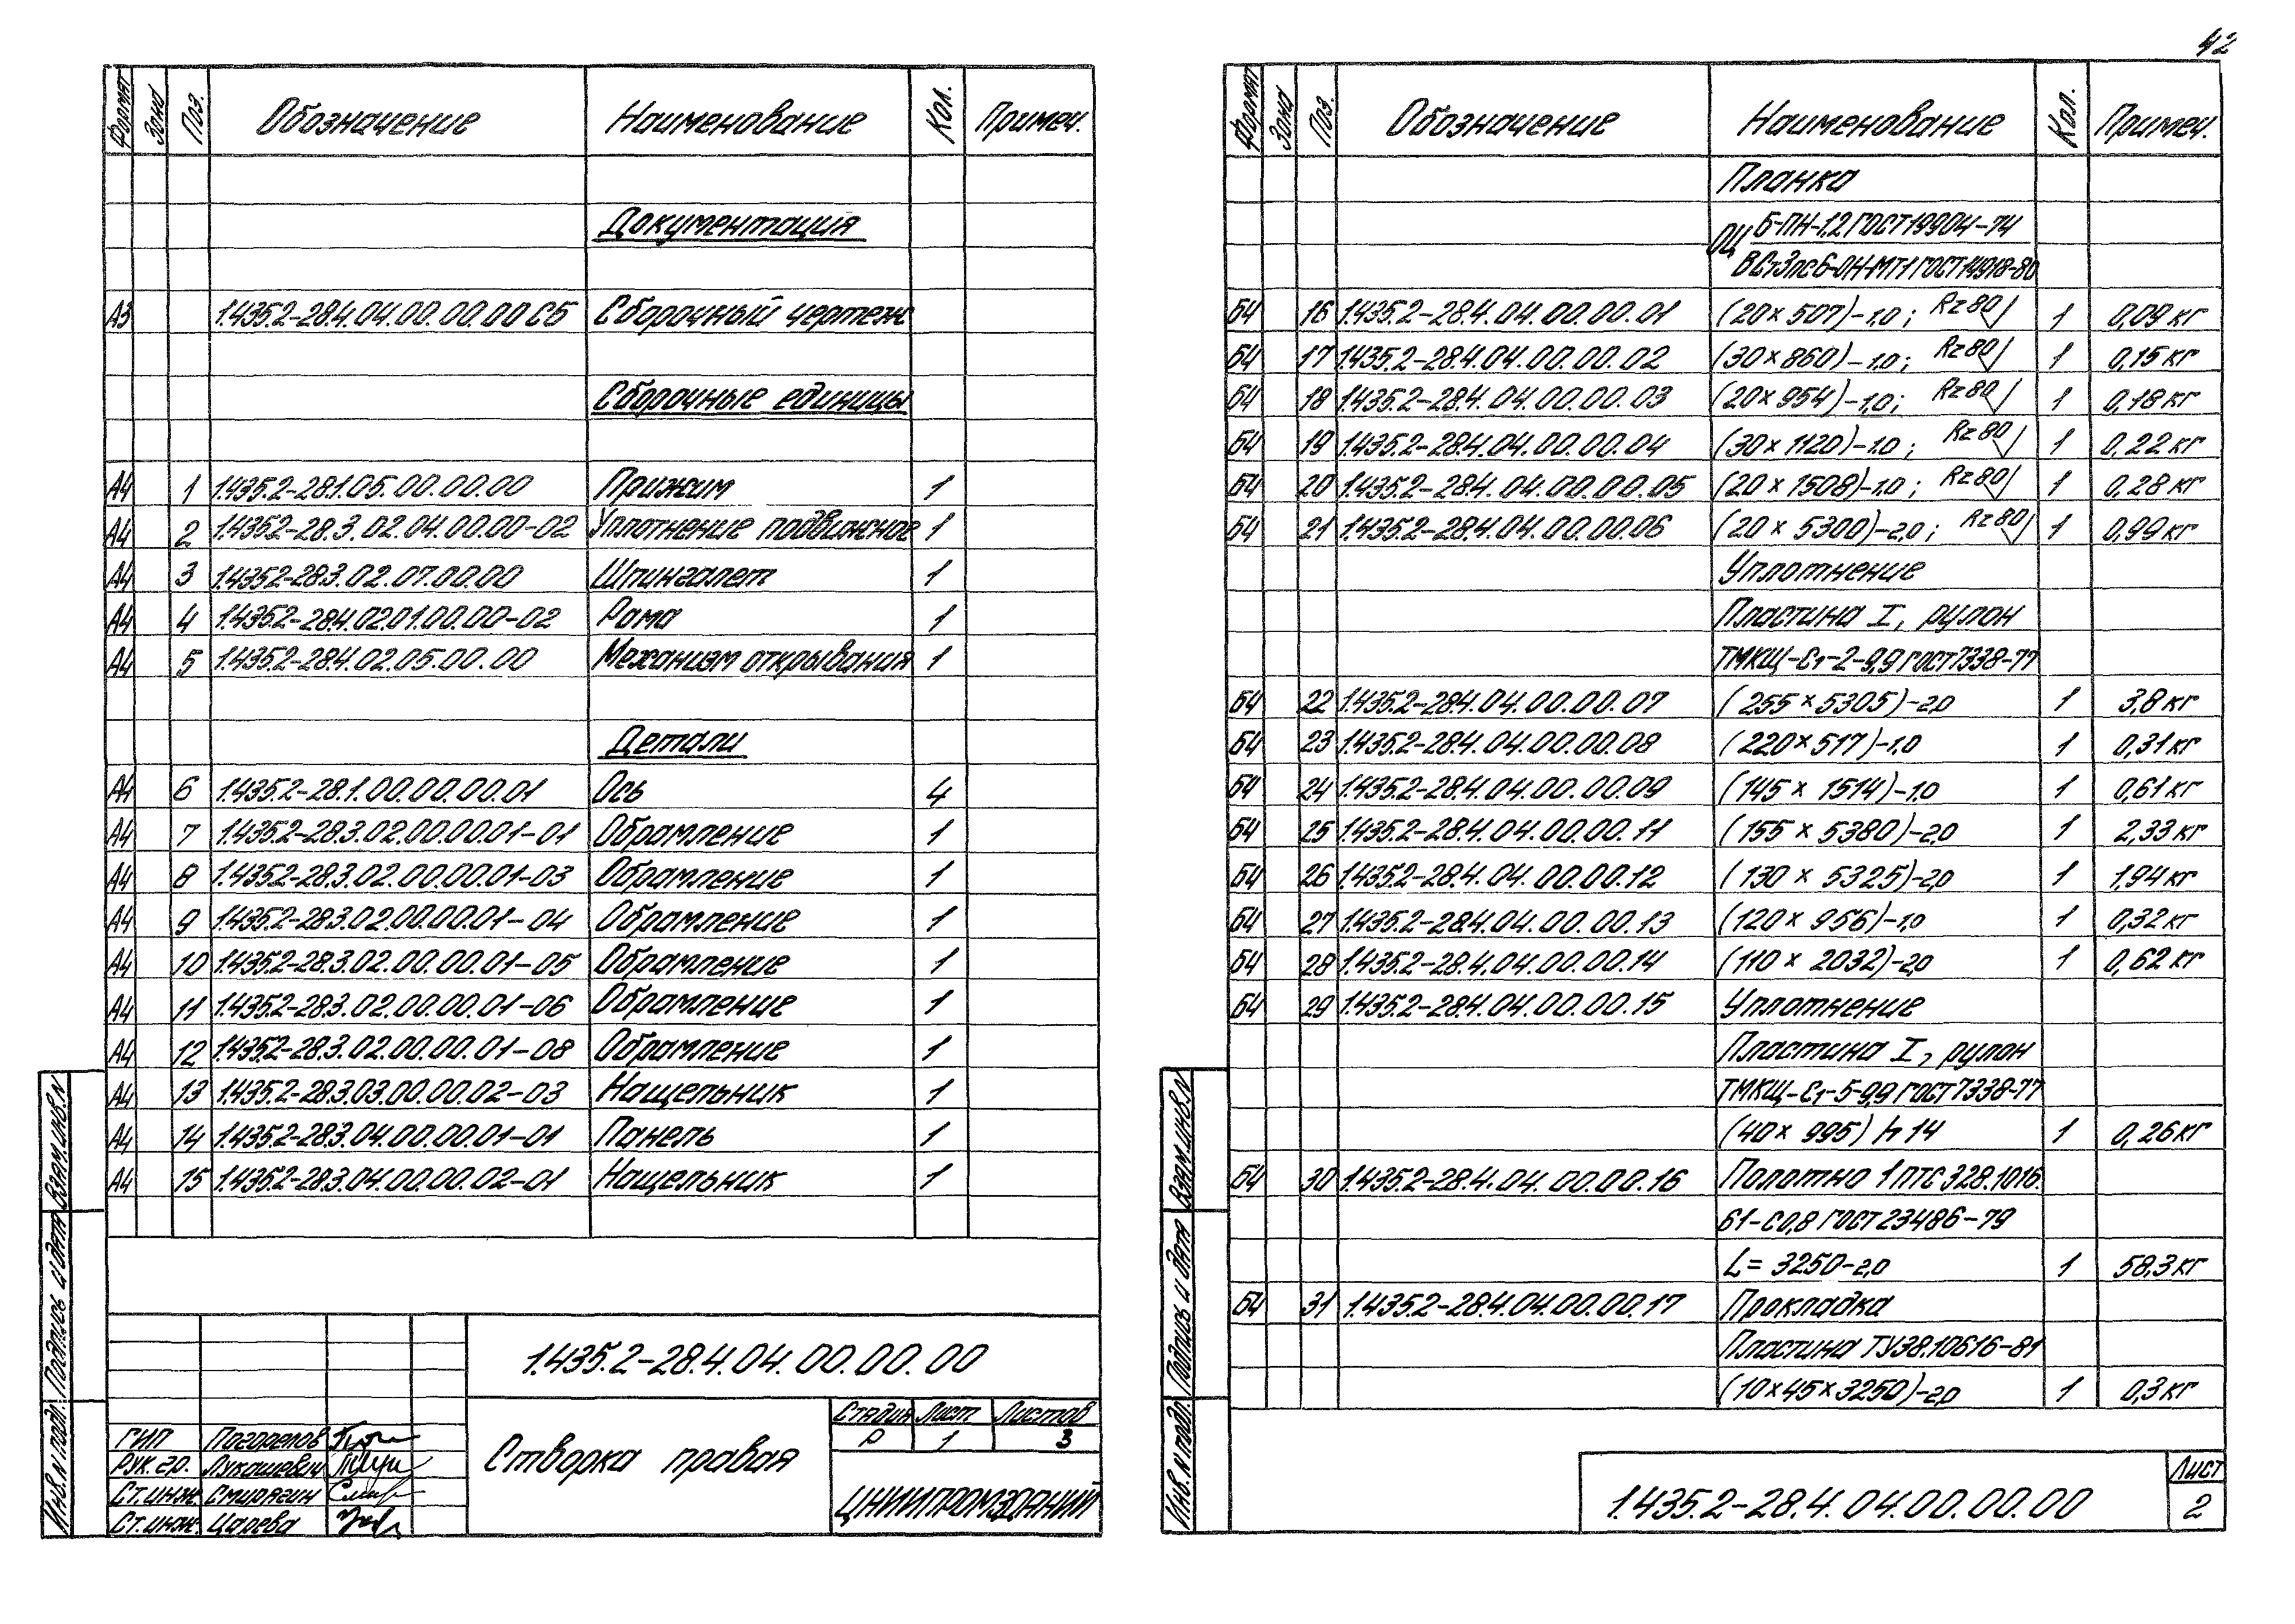 42
Формат Зона Поз. Обозначение Наименование Кол. Примеч.
Документация
А3 1.435.2-28.4.04.00.00.00 СБ Сборочный чертеж
Сборочные единицы
А4 1 1.435.2-28.1.05.00.00.00 Прижим 1
А4 2 1.435.2-28.3.02.04.00.00-02 Уплотнение подвижное 1
А4 3 1.435.2-28.3.02.07.00.00 Шпингалет 1
А4 4 1.435.2-28.4.02.01.00.00-02 Рама 1
А4 5 1.435.2-28.4.02.05.00.00 Механизм открывания 1
Детали
А4 6 1.435.2-28.1.00.00.00.01 Ось 4
А4 7 1.435.2-28.3.02.00.00.01-01 Обрамление 1
А4 8 1.435.2-28.3.02.00.00.01-03 Обрамление 1
А4 9 1.435.2-28.3.02.00.00.01-04 Обрамление 1
А4 10 1.435.2-28.3.02.00.00.01-05 Обрамление 1
А4 11 1.435.2-28.3.02.00.00.01-06 Обрамление 1
А4 12 1.435.2-28.3.02.00.00.01-08 Обрамление 1
А4 13 1.435.2-28.3.03.00.00.02-03 Нащельник 1
А4 14 1.435.2-28.3.04.00.00.01-01 Панель 1
А4 15 1.435.2-28.3.04.00.00.02-01 Нащельник 1
Взам. инв. N
Подпись и дата
Инв. N подл.
1.435.2-28.4.04.00.00.00
Створка правая
Стадия Лист Листов
Р 1 3
ЦНИИПРОМЗДАНИЙ
ГИП Погорелов
Рук. гр. Лукашевич
Ст. инж. Смирягин
Ст. инж. Царева
Формат Зона Поз. Обозначение Наименование Кол. Примеч.
Планка
ОЦ Б-ПН-1,2 ГОСТ 19904-74
ВСт3пс6-ОН-МТ1 ГОСТ 14918-80
БЧ 16 1.435.2-28.4.04.00.00.01 (20×507)-1,0; Rz80 1 0,09 кг
БЧ 17 1.435.2-28.4.04.00.00.02 (30×860)-1,0; Rz80 1 0,15 кг
БЧ 18 1.435.2-28.4.04.00.00.03 (20×954)-1,0; Rz80 1 0,18 кг
БЧ 19 1.435.2-28.4.04.00.00.04 (30×1120)-1,0; Rz80 1 0,22 кг
БЧ 20 1.435.2-28.4.04.00.00.05 (20×1508)-1,0; Rz80 1 0,28 кг
БЧ 21 1.435.2-28.4.04.00.00.06 (20×5300)-2,0; Rz80 1 0,99 кг
Уплотнение
Пластина I, рулон
ТМКЩ-С1-2-9,9 ГОСТ 7338-77
БЧ 22 1.435.2-28.4.04.00.00.07 (255×5305)-2,0 1 3,8 кг
БЧ 23 1.435.2-28.4.04.00.00.08 (220×517)-1,0 1 0,31 кг
БЧ 24 1.435.2-28.4.04.00.00.09 (145×1514)-1,0 1 0,61 кг
БЧ 25 1.435.2-28.4.04.00.00.11 (155×5380)-2,0 1 2,33 кг
БЧ 26 1.435.2-28.4.04.00.00.12 (130×5325)-2,0 1 1,94 кг
БЧ 27 1.435.2-28.4.04.00.00.13 (120×956)-1,0 1 0,32 кг
БЧ 28 1.435.2-28.4.04.00.00.14 (110×2032)-2,0 1 0,62 кг
БЧ 29 1.435.2-28.4.04.00.00.15 Уплотнение
Пластина I, рулон
ТМКЩ-С1-5-9,9 ГОСТ 7338-77
(40×995) h14 1 0,26 кг
БЧ 30 1.435.2-28.4.04.00.00.16 Полотно 1ПТС 328.1016.
Б1-С0,8 ГОСТ 23486-79
L=3250-2,0 1 58,3 кг
БЧ 31 1.435.2-28.4.04.00.00.17 Прокладка
Пластина ТУ38.10616-81
(10×45×3250)-2,0 1 0,3 кг
Взам. инв. N
Подпись и дата
Инв. N подл.
1.435.2-28.4.04.00.00.00
Лист
2